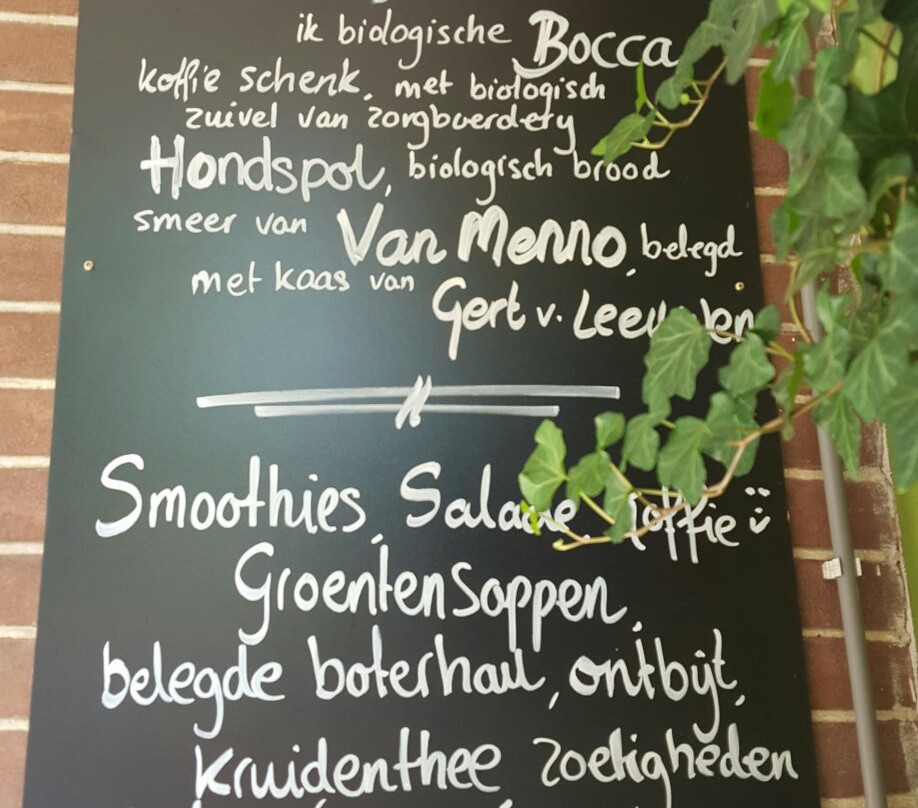 ik biologische Bocca
koffie schenk, met biologisch
zuivel van zorgboerdery
Hondspol, biologisch brood
smeer van Van Menno, belegd
met kaas van Gert v. Leeuwen
Smoothies, Salade, koffie
Groentensoppen,
belegde boterham, ontbijt,
kruidenthee zoetigheden